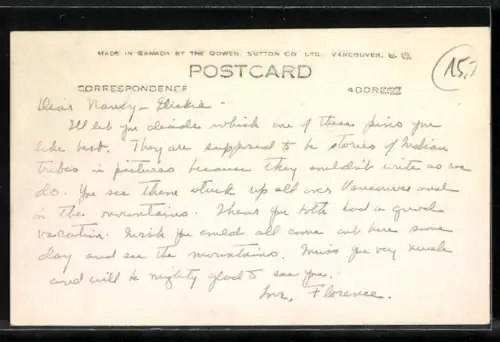 MADE IN CANADA BY THE GOWEN, SUTTON CO. LTD., VANCOUVER, B. C.
POSTCARD
15,-
CORRESPONDENCE
ADDRESS
Dear Nancy –
I'll let you decide which one of these pins you
like best. They are supposed to be stories of Indian
tribes in pictures because they couldn't write as we
do. You see them stuck up all over Vancouver and
in the mountains. I hear you both had a good
vacation. Wish you could all come out here some
day and see the mountains. Miss you very much
and will be mighty glad to see you.
Love, Florence.